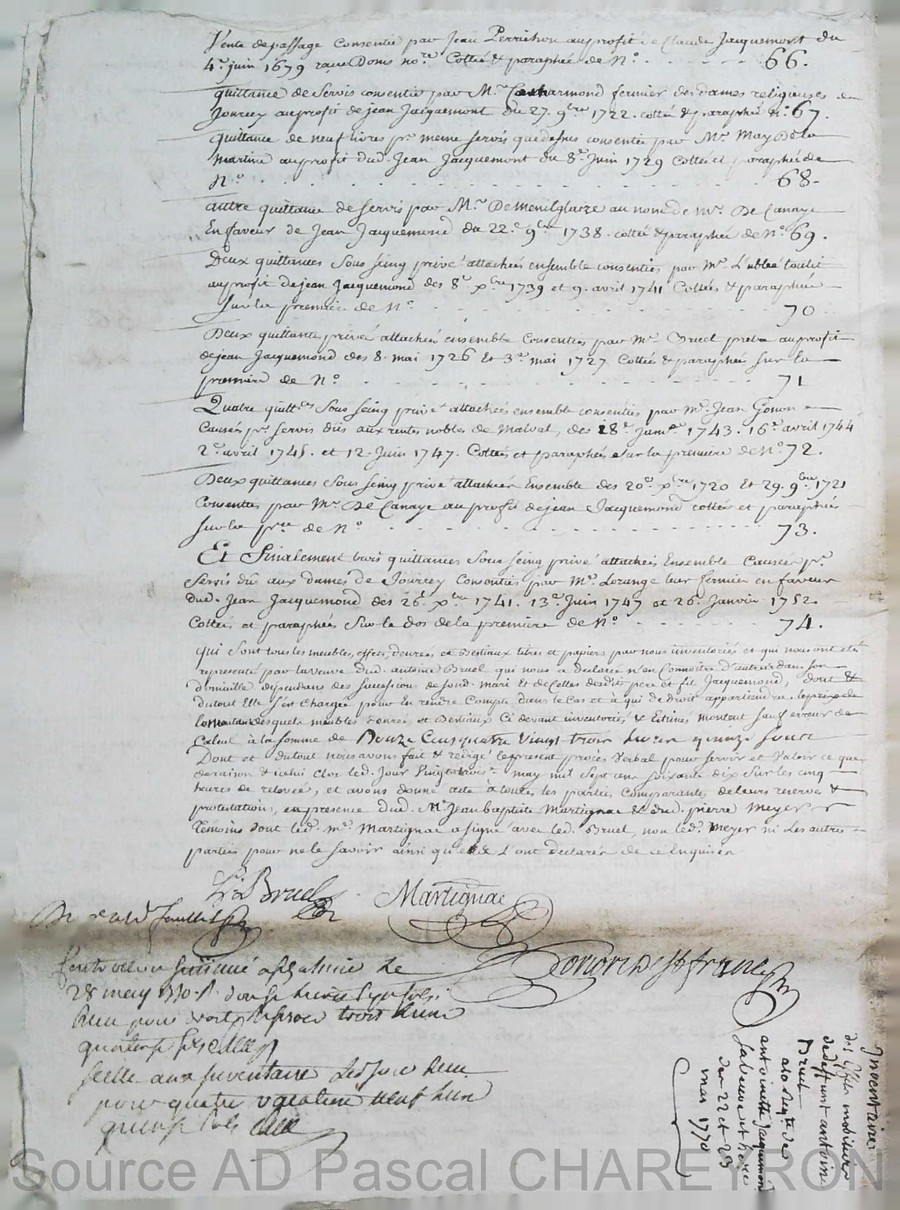 Vente depassage Consentie par Jean Perrichon auprofit de Claude Jacquemont du
4e. juin 1679 Donis nore. Cottée & paraphée de No. 66.
quittance de Servis consentie par Mr. fermier des dames religieuses de
Jourcey auprofit de jean Jacquemont du 27. 9bre 1722. cottée & paraphée No. 67.
quittance de neuf livres pr. meme servis que dessus consentie par Mr. May Dela
Martine auprofit dud. Jean Jacquemont du 8e. Juin 1729 Cottée et paraphée de
No. 68.
autre quittance de servis par Mr. De Menilglaize au nom de Mr. De Canaye
En faveur de Jean Jacquemond du 22e. 9bre 1738. cottée & paraphée de No. 69.
Deux quittances sous seing privé attachées ensemble consenties par Mr.
auprofit de jean Jacquemond des 8e. xbre 1739 et 9. avril 1741 Cottées & paraphées
sur la première de No. 70
Deux quittance privée attachées ensemble Consenties par Mr. Bruel pretre auprofit
de jean Jacquemond des 8. mai 1726 Et 3e. mai 1727 Cottées & paraphées sur la
première de No. 71
Quatre quittces. Sous Seing privé attachées ensemble consenties par Mr. Jean Gonon
Causées pr. servis dûs aux rentes nobles de Malval, des 18e. 1743. 16e. avril 1744
2e. avril 1745. et 12. Juin 1747. Cottées et paraphées sur la première de No. 72.
Deux quittances Sous Seing privé attachées Ensemble des 20e. xbre 1720 et 29. 9bre 1721
Consenties par Mr. De Canaye au profit de jean Jacquemond cottées et paraphées
sur la pre. de No. 73.
Et Finalement trois quittances Sous Seing privé attachées Ensemble Causées pr.
Servis dûs aux dames de Jourcey Consenties par Mr. Lorange leur fermier en faveur
dud. Jean Jacquemond des 26e. xbre 1741. 13e. Juin 1747 et 26. Janvier 1752.
Cottées et paraphées Sur le dos de la première de No. 74.
qui Sont tous les meubles, effets, denrées et Bestiaux titres et papiers par nous inventoriés et qui nous ont eté
representé par la veuve dud. antoine Bruel qui nous a declaré n'en Connoitre d'autres dans son
domicille dependans des Succession de Sond. Mari et de Celles desdits pere et fil Jacquemond, dont &
du tout Elle s'est Chargée pour en rendre Compte dans le Cas et à qui de droit appartiendra. le prix de
montant desquels meubles denrées et Bestiaux Ci devant inventoriés, & Estimés montent sauf erreur de
Calcul à la Somme de Douze Cens quatre vingt trois livres quinze sous
Dont et du tout nous avons fait & redigé le present procès Verbal pour servir et valoir ce que
de raison & icelui Clos led. Jour vingt trois may mil sept cens soixante dix sur les cinq
heures de relevée, et avons donné acte à toutes les parties Comparantes de leurs reserves &
protestations, en presence dud. Mr. Jean baptiste Martignac & dud. pierre Meyer
temoins dont led. Mr. Martignac a signé avec led. Bruel, non led. Meyer ni les autres
parties pour ne le savoir ainsi qu'elles l'ont declaré de ce Enquises
Bruel Martignac
st franc
28 may 1770
Reçu pour trois livres
quatorze sols
Scellé aux inventaire
pour quatre neuf livres
quinze sols
Inventaires
des effets mobiliers
de deffunt antoine
Bruel
a la Reqte. de
antoinette Jacquemond
sa veuve
des 22 et 23
mai 1770
Source AD Pascal CHAREYRON